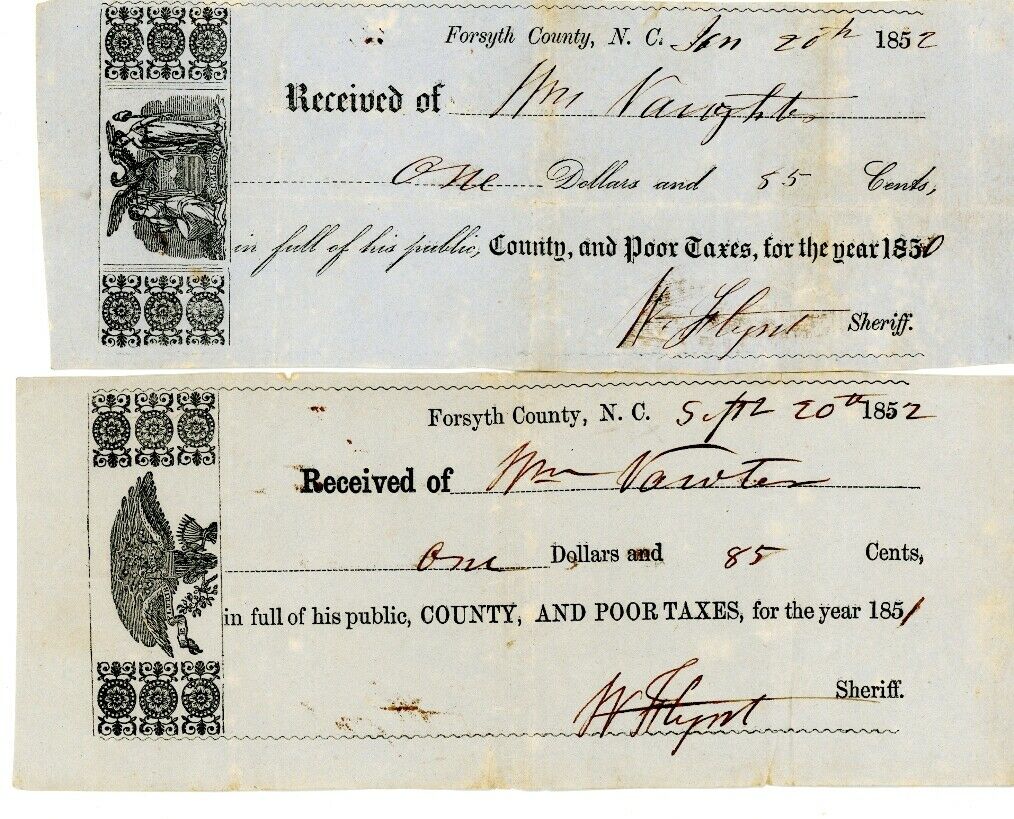 Forsyth County, N. C. Jan 20th 1852
Received of Wm Vaughter
One Dollars and 85 Cents,
in full of his public, County, and Poor Taxes, for the year 1850
W. Flynt Sheriff.
Forsyth County, N. C. Sept 20th 1852
Received of Wm Vawter
One Dollars and 85 Cents,
in full of his public, COUNTY, AND POOR TAXES, for the year 1851
W Flynt Sheriff.